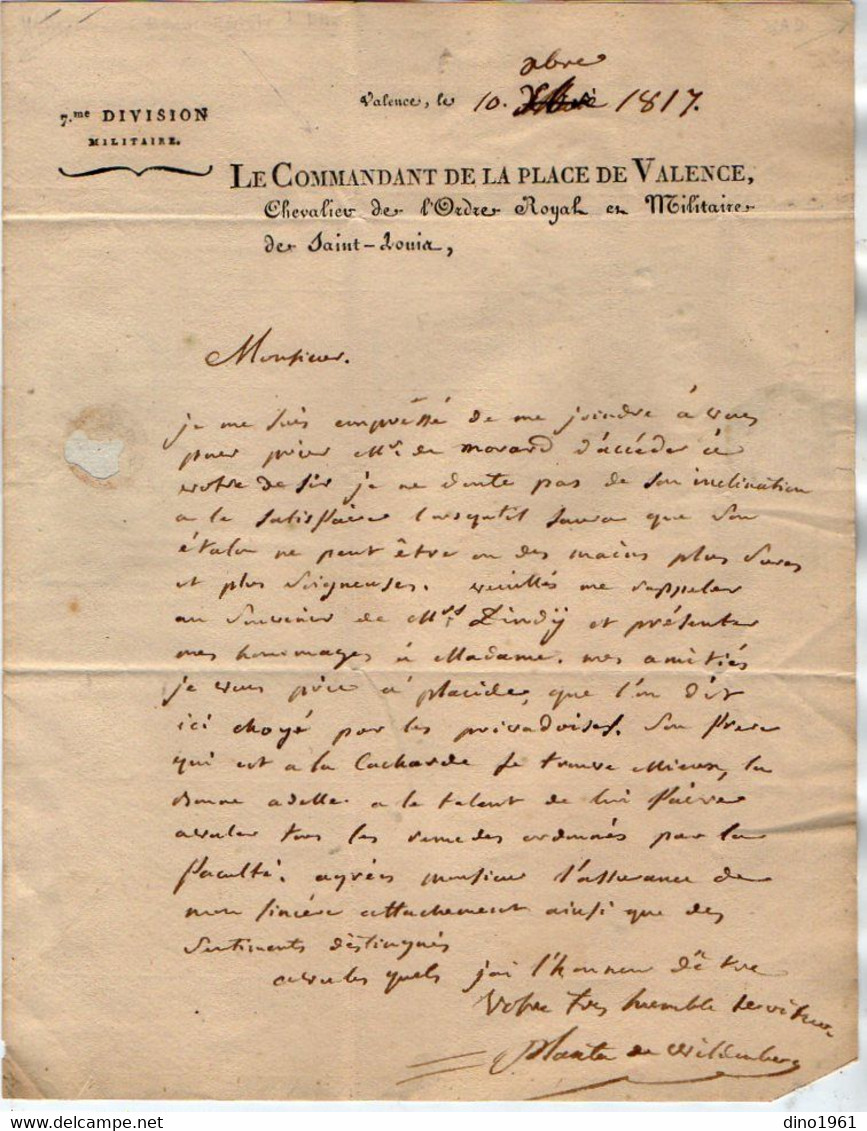 7.me DIVISION
MILITAIRE.
xbre
Valence, le 10. 1817.
LE COMMANDANT DE LA PLACE DE VALENCE,
Chevalier de l'Ordre Royal et Militaire
de Saint-Louis,
Monsieur.
je me suis empréssé de me joindre à vous
pour prier Mr. de morard d'accéder à
votre desir je ne doute pas de son inclination
a le satisfaire lorsqu'il saura que son
étalon ne peut être en des mains plus sures
et plus soigneuses. veuillés me rappeler
au souvenir de Mrs Zindÿ et présenter
mes hommages à Madame. mes amitiés
je vous prie a placide, que l'on dit
ici choyé par les privadoises. son frere
qui est a la Cacharde se trouve Mieux, la
bonne adelle a le talent de lui faire
avaler tous les remedes ordonnés par la
faculté. agrées monsieur l'assurance de
mon sincére attachement ainsi que des
sentiments distingués
avec les quels jai l'honneur d'être
Votre tres humble serviteur
Planta de Wildenberg
dino1961